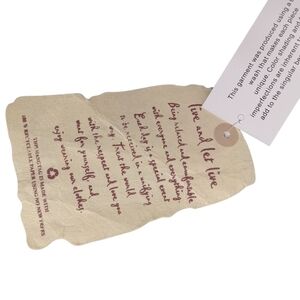 This garment was produced using a
wash that makes each piece
unique. Color shading and
imperfections are inherent t
add to the singular be
live and let live
Being relaxed and comfortable
with everyone and everything.
Each day is a special event
is exercised in a unifying
way. Trust the world
with the respect and love you
want for yourself and
enjoy wearing our clothes.
THIS HANGTAG IS MADE WITH
100 % RECYCLABLE PAPER USING NO NEW TREES